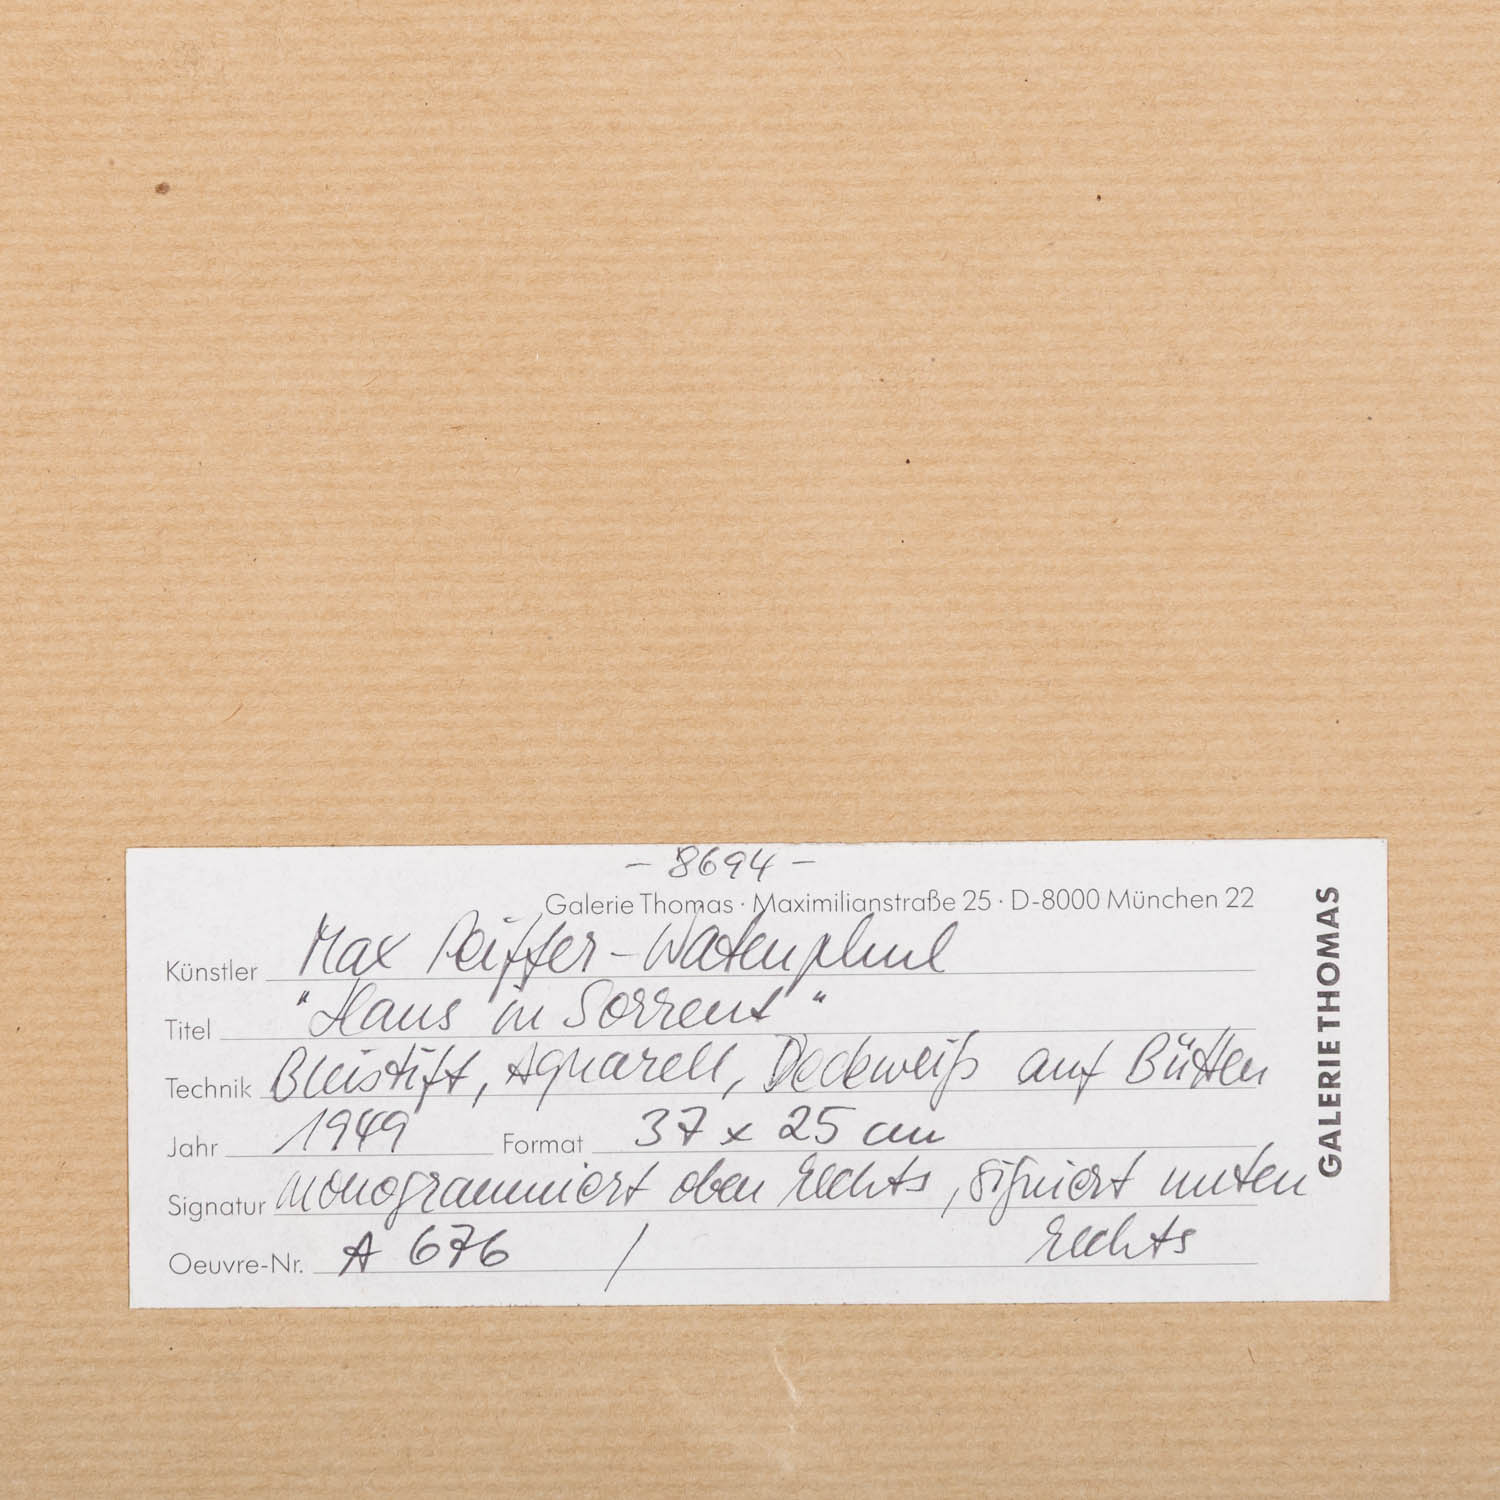 - 8694 -
Galerie Thomas · Maximilianstraße 25 · D-8000 München 22
Künstler Max Peiffer-Watenphul
Titel "Haus in Sorrent"
Technik Bleistift, Aquarell, Deckweiß auf Bütten
Jahr 1949 Format 37 x 25 cm
Signatur monogrammiert oben rechts, signiert unten
rechts
Oeuvre-Nr. A 676 /
GALERIE THOMAS